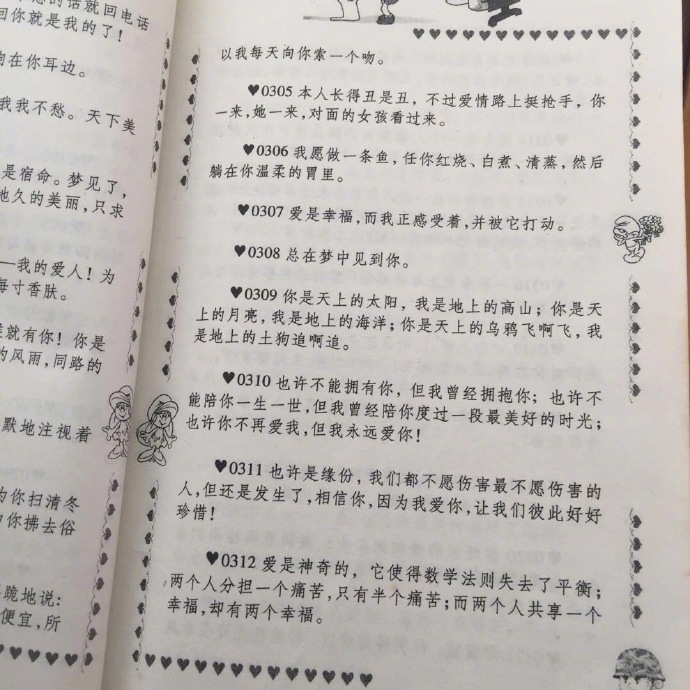 的话就回电话
回你就是我的了！
在你耳边。
我我不愁。天下美
是宿命。梦见了，
地久的美丽，只求
——我的爱人！为
每寸香肤。
就有你！你是
的风雨，同路的
默地注视着
为你扫清冬
你拂去俗
跪地说：
便宜，所
以我每天向你索一个吻。
♥0305 本人长得丑是丑，不过爱情路上挺抢手，你
一来，她一来，对面的女孩看过来。
♥0306 我愿做一条鱼，任你红烧、白煮、清蒸，然后
躺在你温柔的胃里。
♥0307 爱是幸福，而我正感受着，并被它打动。
♥0308 总在梦中见到你。
♥0309 你是天上的太阳，我是地上的高山；你是天
上的月亮，我是地上的海洋；你是天上的乌鸦飞啊飞，我
是地上的土狗追啊追。
♥0310 也许不能拥有你，但我曾经拥抱你；也许不
能陪你一生一世，但我曾经陪你度过一段最美好的时光；
也许你不再爱我，但我永远爱你！
♥0311 也许是缘份，我们都不愿伤害最不愿伤害的
人，但还是发生了，相信你，因为我爱你，让我们彼此好好
珍惜！
♥0312 爱是神奇的，它使得数学法则失去了平衡；
两个人分担一个痛苦，只有半个痛苦；而两个人共享一个
幸福，却有两个幸福。